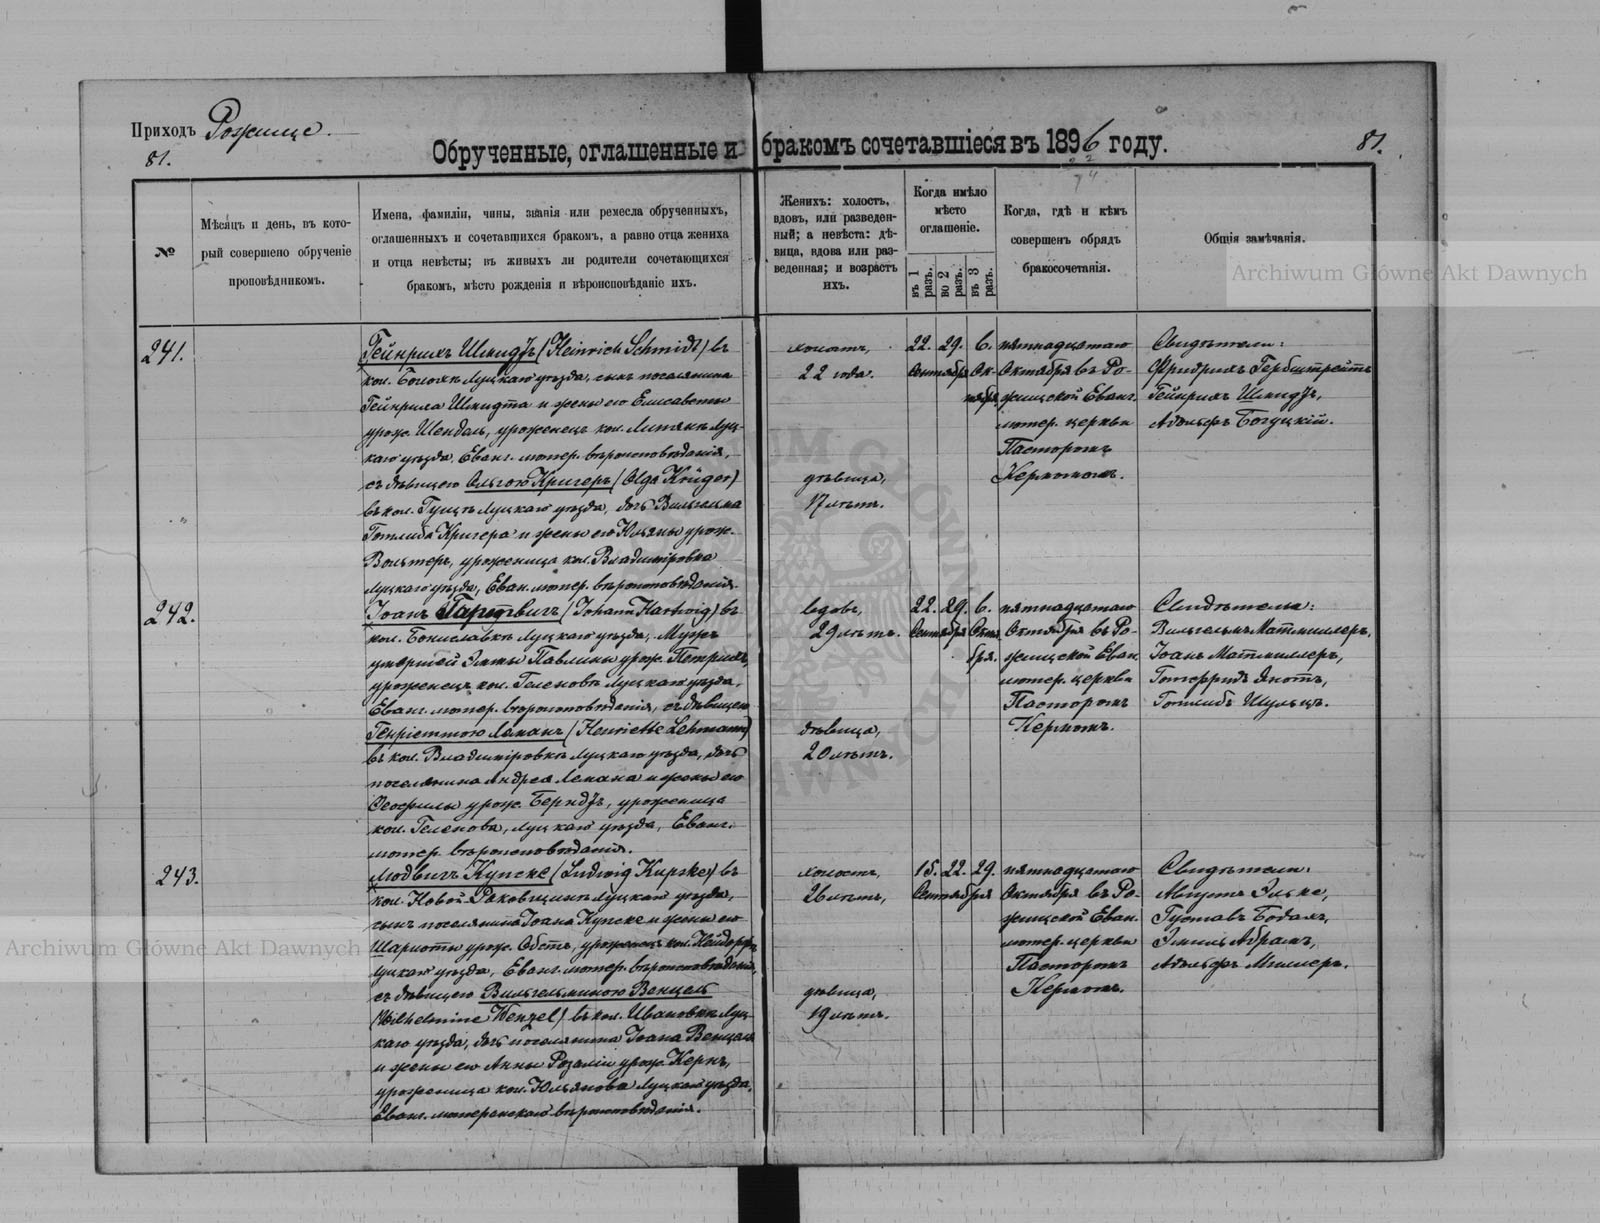 Приходъ Рожище.
81.
Обрученные, оглашенные и бракомъ сочетавшіеся въ 1896 году.
81.
№
Мѣсяцъ и день, въ кото-
рый совершено обрученіе
проповѣдникомъ.
Имена, фамиліи, чины, званія или ремесла обрученныхъ,
оглашенныхъ и сочетавшихся бракомъ, а равно отца жениха
и отца невѣсты; въ живыхъ ли родители сочетающихся
бракомъ, мѣсто рожденія и вѣроисповѣданіе ихъ.
Женихъ: холостъ,
вдовъ, или разведен-
ный; а невѣста: дѣ-
вица, вдова или раз-
веденная; и возрастъ
ихъ.
Когда имѣло
мѣсто
оглашеніе.
въ 1 разъ.
во 2 разъ.
въ 3 разъ.
Когда, гдѣ и кѣмъ
совершенъ обрядъ
бракосочетанія.
Общія замѣчанія.
Archiwum Główne Akt Dawnych
241.
Гейнрихъ Шмидтъ (Heinrich Schmidt) въ
кол. Луцкаго уѣзда, сынъ поселянина
Гейнриха Шмидта и жены его Елисаветы
урож. Шендель, уроженецъ кол. Луц-
каго уѣзда, Еванг. лютер. вѣроисповѣданія,
съ дѣвицею Ольгою Кригеръ (Olga Krüger)
въ кол. Гущѣ Луцкаго уѣзда, дочь Вильгельма
Готлиба Кригера и жены его Юльяны урож.
Вольтеръ, уроженица кол. Владимировка
Луцкаго уѣзда, Еван. лютер. вѣроисповѣданія.
холостъ,
22 года.
дѣвица,
17 лѣтъ.
22. 29. 6.
Сентября Ок-
тября.
пятнадцатаго
Октября въ Ро-
жищской Еванг.
лютер. церкви
Пасторомъ
Керномъ.
Свидѣтели:
Фридрихъ Гербштрейтъ
Гейнрихъ Шмидтъ,
Адольфъ Богуцкій.
242.
Іоанъ Гартвигъ (Johann Hartwig) въ
кол. Бониславкѣ Луцкаго уѣзда, Мужъ
умершей Эммы Павлины урож. Петрихъ,
уроженецъ кол. Геленовъ Луцкаго уѣзда,
Еванг. лютер. вѣроисповѣданія, съ дѣвицею
Генріеттою Леманъ (Henriette Lehmann)
въ кол. Владимировкѣ Луцкаго уѣзда, дочь
поселянина Андрея Лемана и жены его
Феофилы урож. Берндтъ, уроженица
кол. Геленова, Луцкаго уѣзда, Еванг.
лютер. вѣроисповѣданія.
вдовъ,
29 лѣтъ.
дѣвица,
20 лѣтъ.
22. 29. 6.
Сентября Октя-
бря.
пятнадцатаго
Октября въ Ро-
жищской Еван.
лютер. церкви
Пасторомъ
Керномъ.
Свидѣтели:
Вильгельмъ Матмиллеръ,
Іоанъ Матмиллеръ,
Готфридъ
Готлибъ Шульцъ.
243.
Людвигъ Купске (Ludwig Kupske) въ
кол. Новой-Раковщинѣ Луцкаго уѣзда,
сынъ поселянина Іоана Купске и жены его
Шарлоты урож. Обстъ, уроженецъ кол. Нейдорфъ
Луцкаго уѣзда, Еванг. лютер. вѣроисповѣданія,
съ дѣвицею Вильгельминою Венцель
(Wilhelmine Wenzel) въ кол. Ивановкѣ Луц-
каго уѣзда, дочь поселянина Іоана Венцеля
и жены его Анны Розаліи урож. Кернъ,
уроженица кол. Юльянова Луцкаго уѣзда,
Еванг. лютеранскаго вѣроисповѣданія.
холостъ,
26 лѣтъ,
дѣвица,
19 лѣтъ.
15. 22. 29.
Сентября
пятнадцатаго
Октября въ Ро-
жищской Еван.
лютер. церкви
Пасторомъ
Керномъ.
Свидѣтели:
Августъ Эльке,
Густавъ
Эмиль Абрамъ,
Адольфъ Миллеръ.
Archiwum Główne Akt Dawnych